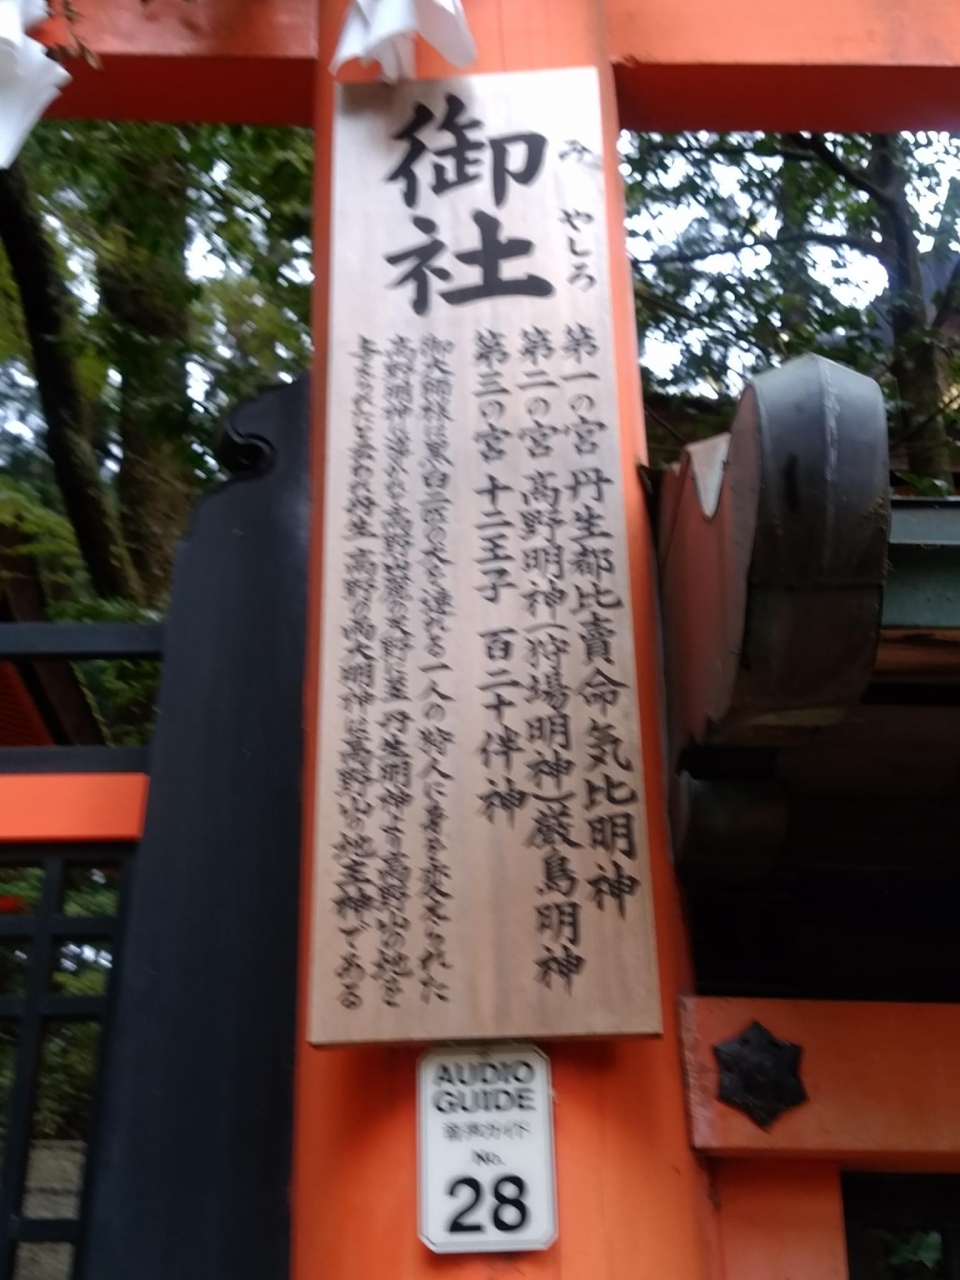 御社
みやしろ
第一の宮 丹生都比賣命 気比明神
第二の宮 高野明神(狩場明神)厳島明神
第三の宮 十二王子 百二十伴神
御大師様は黒白二匹の犬を連れる一人の狩人に身を変えられた
高野明神に導かれ高野山麓の天野に至 丹生明神より高野山の地を
与えられたと云われ 丹生 高野の両大明神は高野山の地主神である
AUDIO
GUIDE
音声ガイド
No.
28